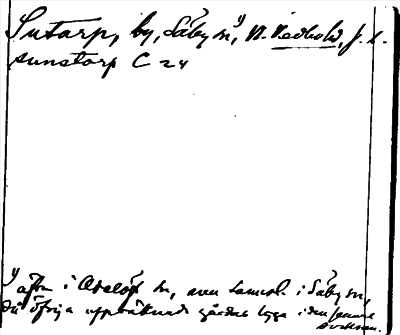 Sutarp, by, Säby sn, N. Vedbohd, f. l.
sunstorp C 24
i sn, även i Säby sn,
då öfriga uppräknade gårdar ligga i den senare
socknen.